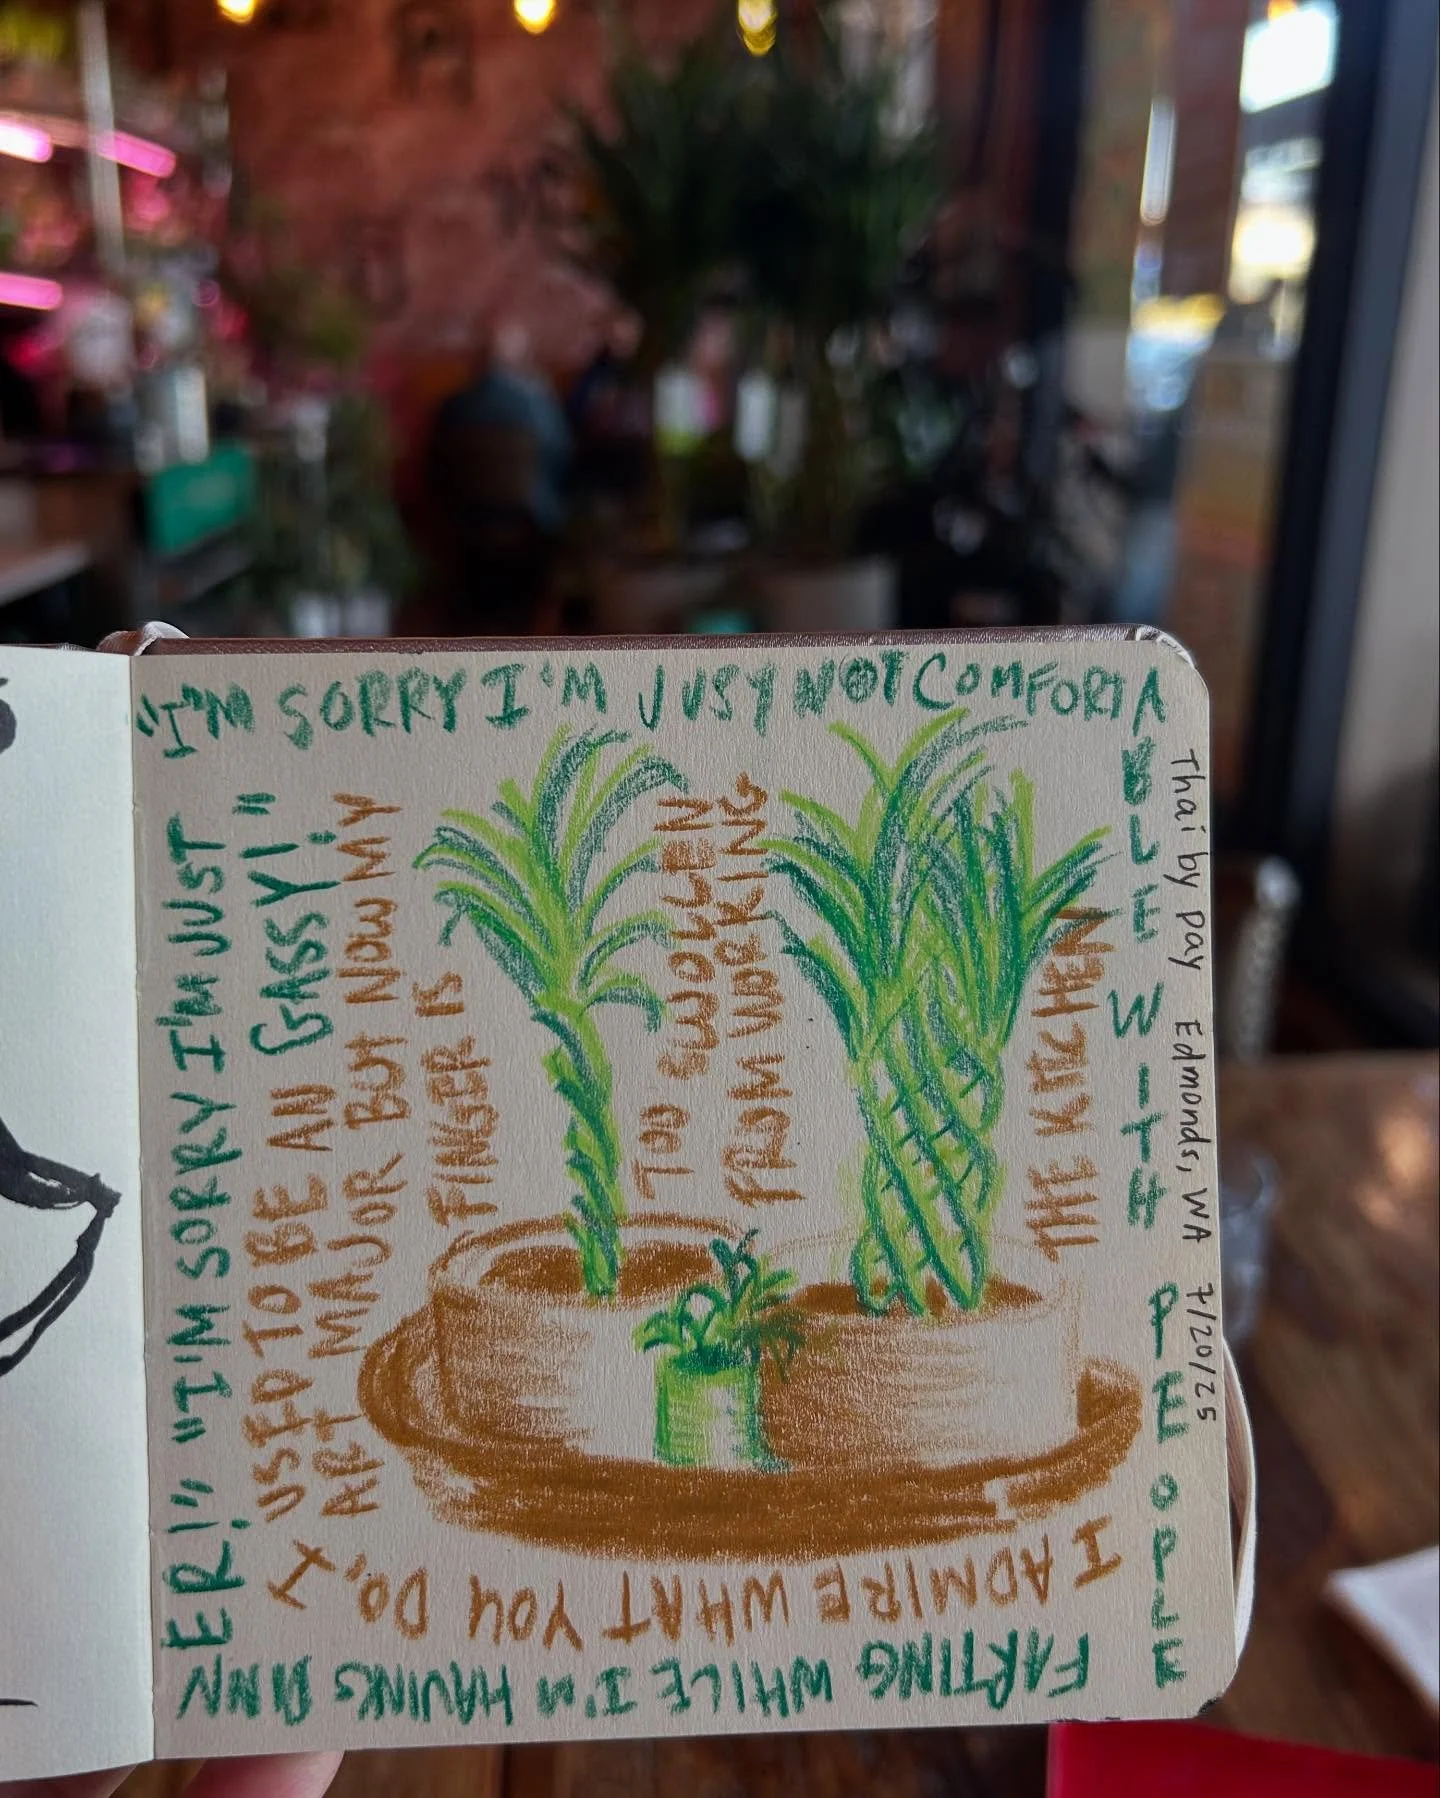 "I'M SORRY I'M JUSY NOT COMFORTA
BLE WITH PEOPLE
FARTING WHILE I'M HAVING DINN
ER!" "I'M SORRY I'M JUST
GASSY!"
I ADMIRE WHAT YOU DO, I
USED TO BE AN
ART MAJOR BUT NOW MY
FINGER IS
TOO SWOLLEN
FROM WORKING
THE KITCHEN
Thai by Day Edmonds, WA 7/20/25